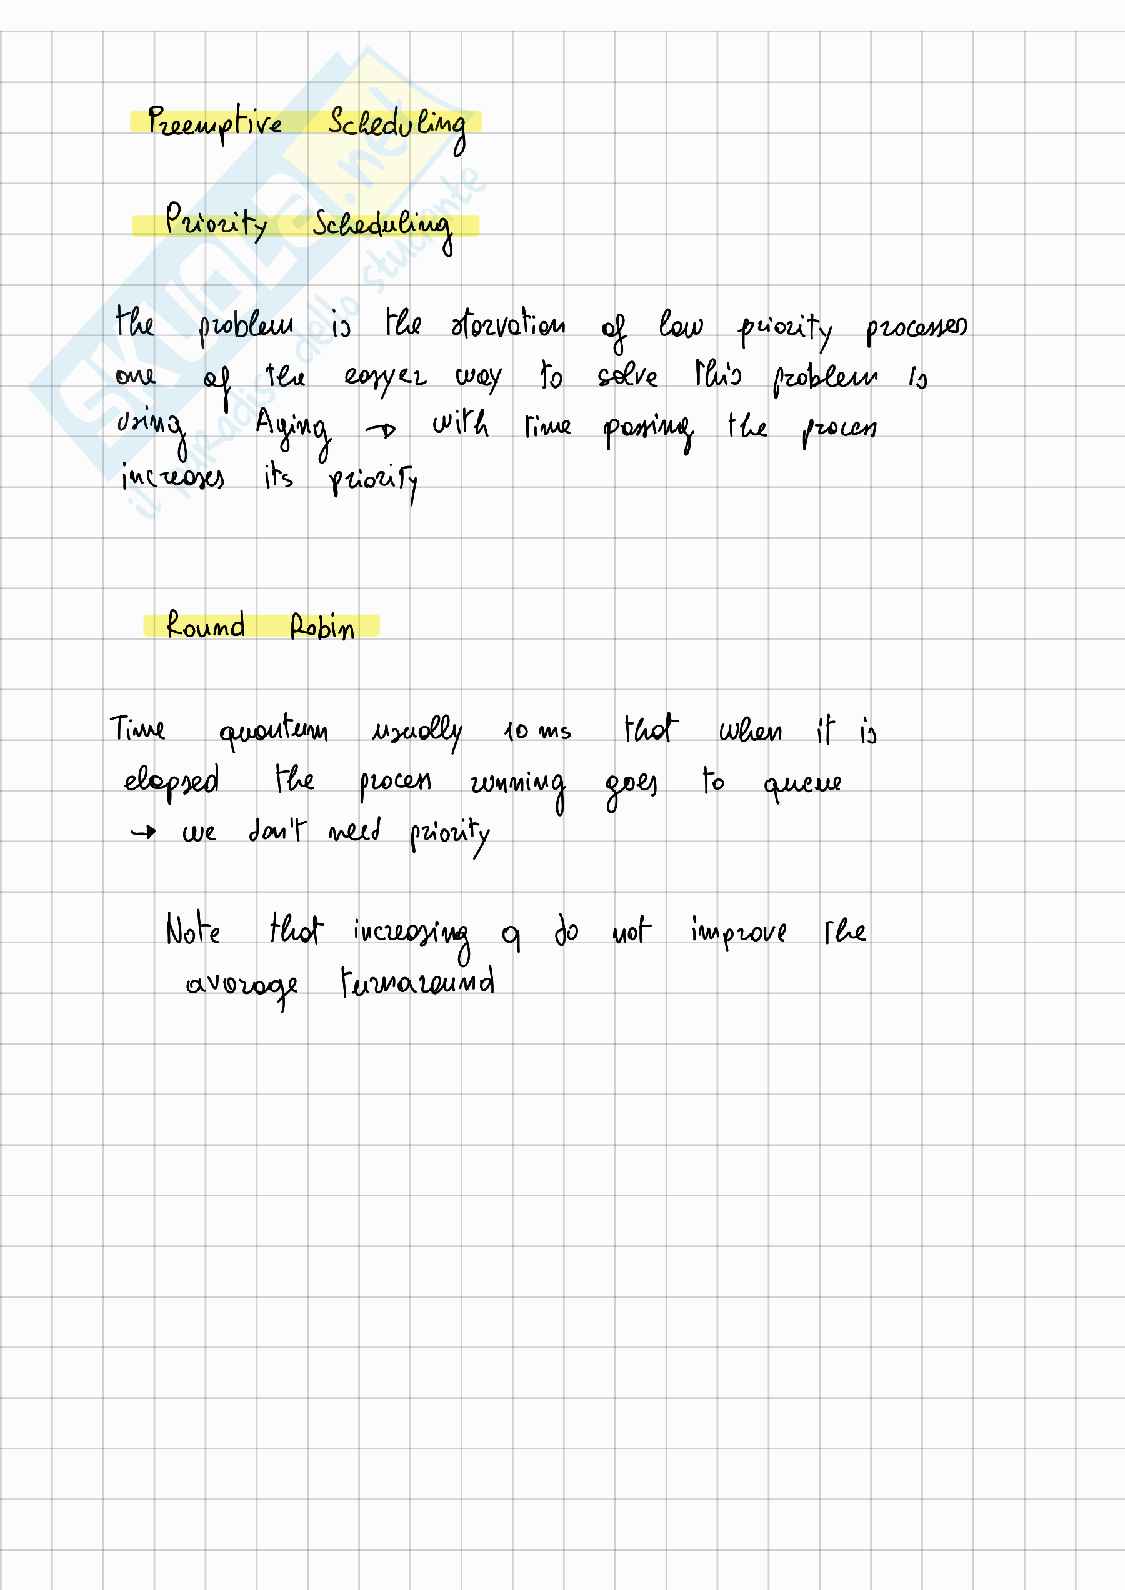 Preemptive Scheduling
Priority Scheduling
the problem is the starvation of low priority processes
one of the easyer way to solve this problem is
using Aging → with time passing the process
increases its priority
Round Robin
Time quantum usually 10 ms that when it is
elapsed the process running goes to queue
→ we don't need priority
Note that increasing q do not improve the
average turnaround
SKUOLA.net
il paradiso dello studente